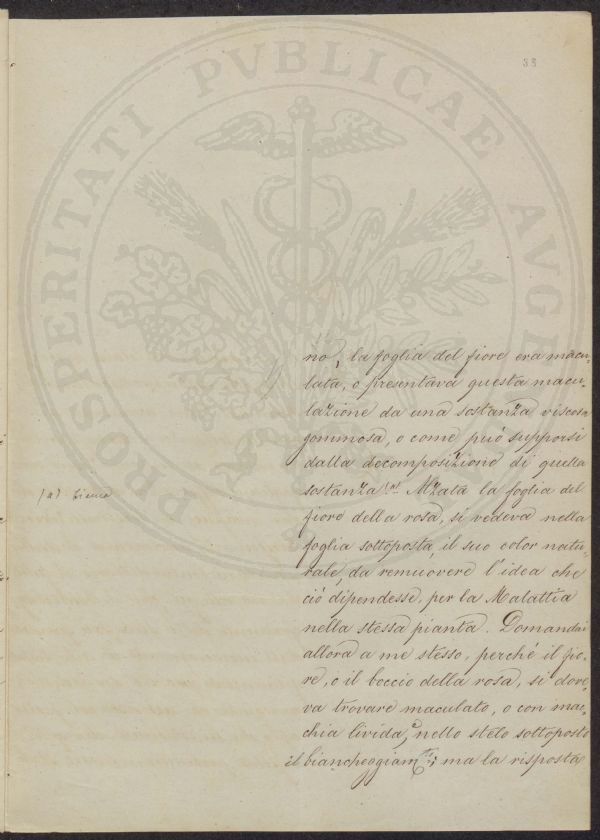 33
PROSPERITATI PVBLICAE AVGE
no, la foglia del fiore era macu-
lata, o presentava questa macu-
lazione da una sostanza viscosa
gommosa, o come può supporsi
dalla decomposizione di quella
sostanza (a). Alzata la foglia del
(a)
fiore della rosa, si vedeva nella
foglia sottoposta, il suo color natu-
rale, da remuovere l'idea che
ciò dipendesse, per la Malattia
nella stessa pianta. Domandai
allora a me stesso, perché il fio-
re, o il boccio della rosa, si dove-
va trovare maculato, o con mac-
chia livida, e nello stelo sottoposto
il biancheggiam.to; ma la risposta